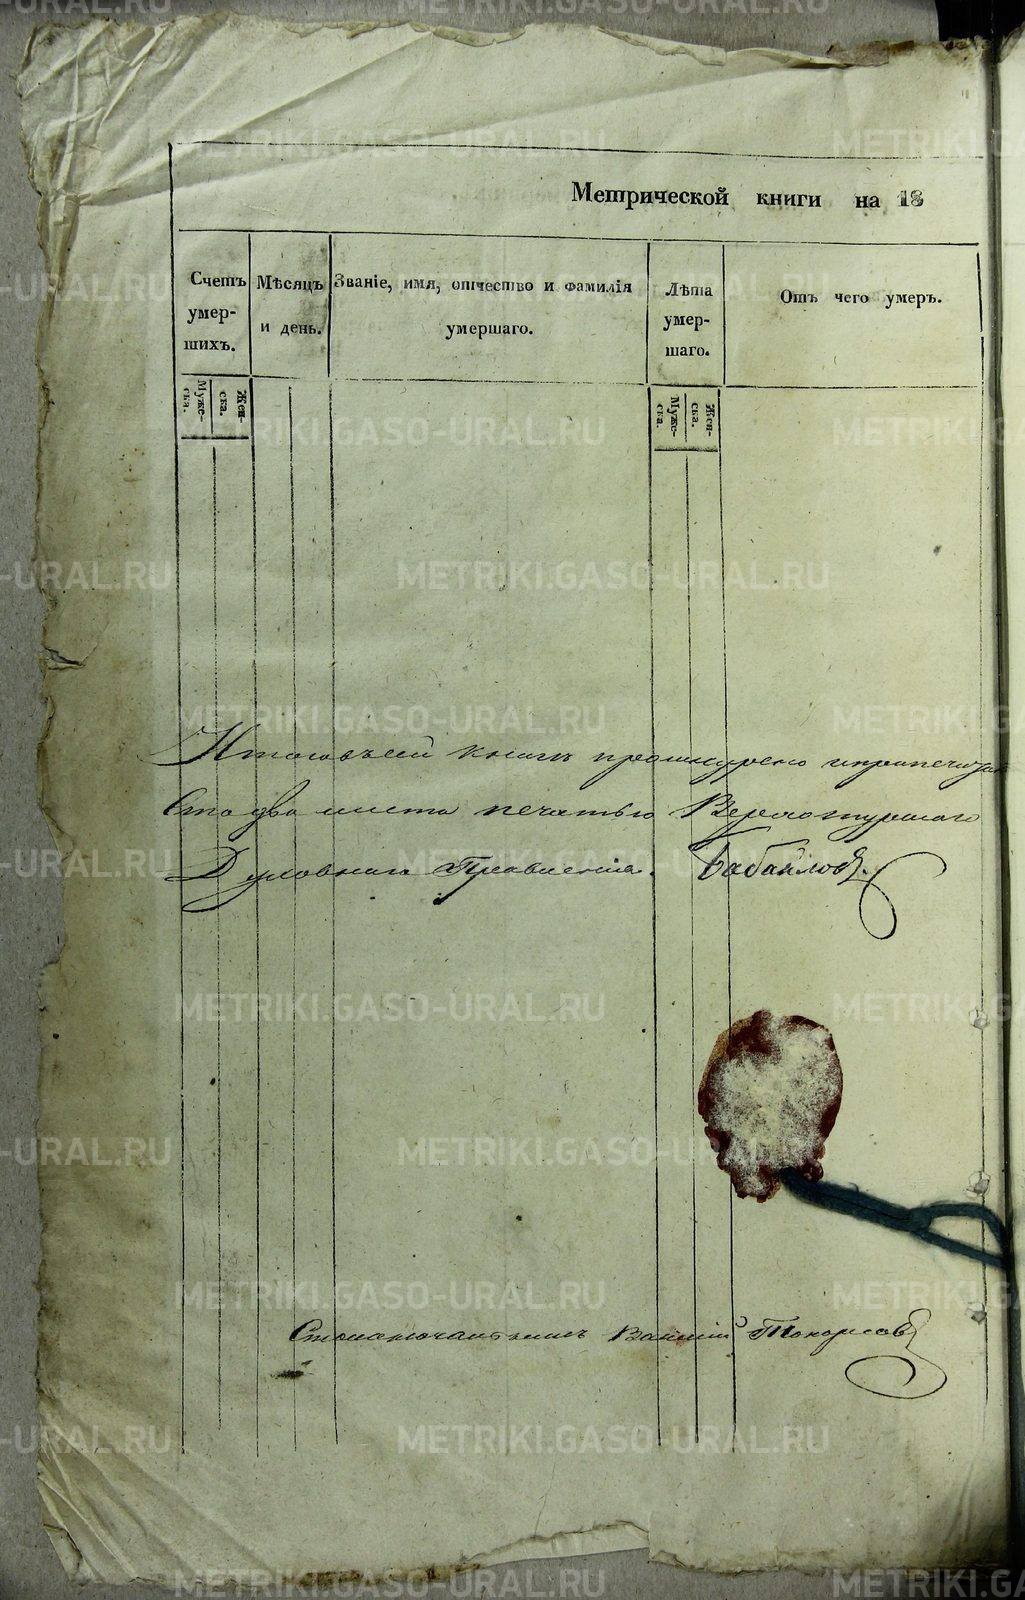 Метрической книги на 18
Счетъ умер- шихъ.
Мѣсяцъ и день.
Званіе, имя, отчество и фамилія умершаго.
Лѣта умер- шаго.
Отъ чего умеръ.
Муже- ска.
Жен- ска.
Муже- ска.
Жен- ска.
книгѣ прошнурено и припечатан
Сто два листа печатью Верхотурскаго
Духовнаго Правленія. Бабайловъ.
Столоначальникъ Топорковъ
METRIKI.GASO-URAL.RU